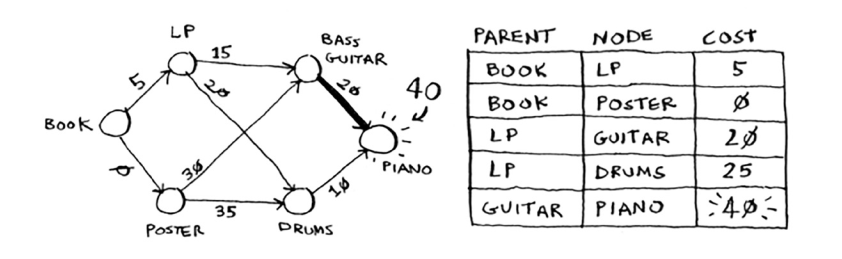 LP
15
BASS
GUITAR
5
20
20
40
BOOK
PIANO
0
30
10
35
POSTER
DRUMS
PARENT NODE COST
BOOK LP 5
BOOK POSTER 0
LP GUITAR 20
LP DRUMS 25
GUITAR PIANO 40